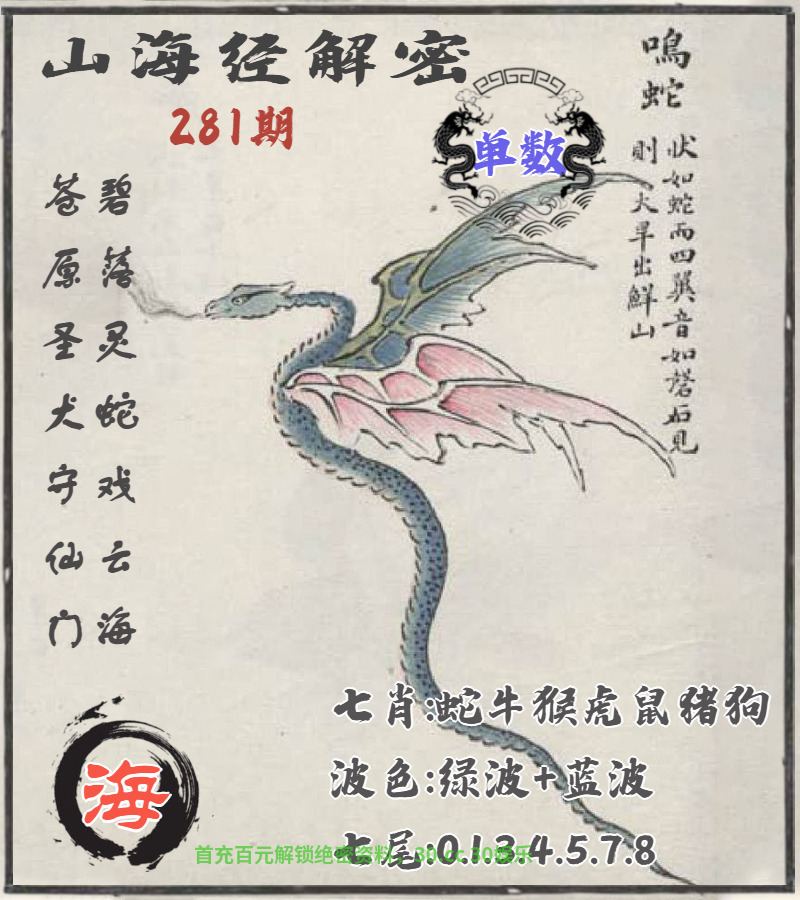 山海经解密
281期
单数
鳴蛇
状如蛇而四翼音如磬石見
則大旱出鮮山
碧落灵蛇戏云海
苍原圣犬守仙门
七肖:蛇牛猴虎鼠猪狗
波色:绿波+蓝波
七尾:0.1.3.4.5.7.8
首充百元解锁绝密资料
30娱乐
海